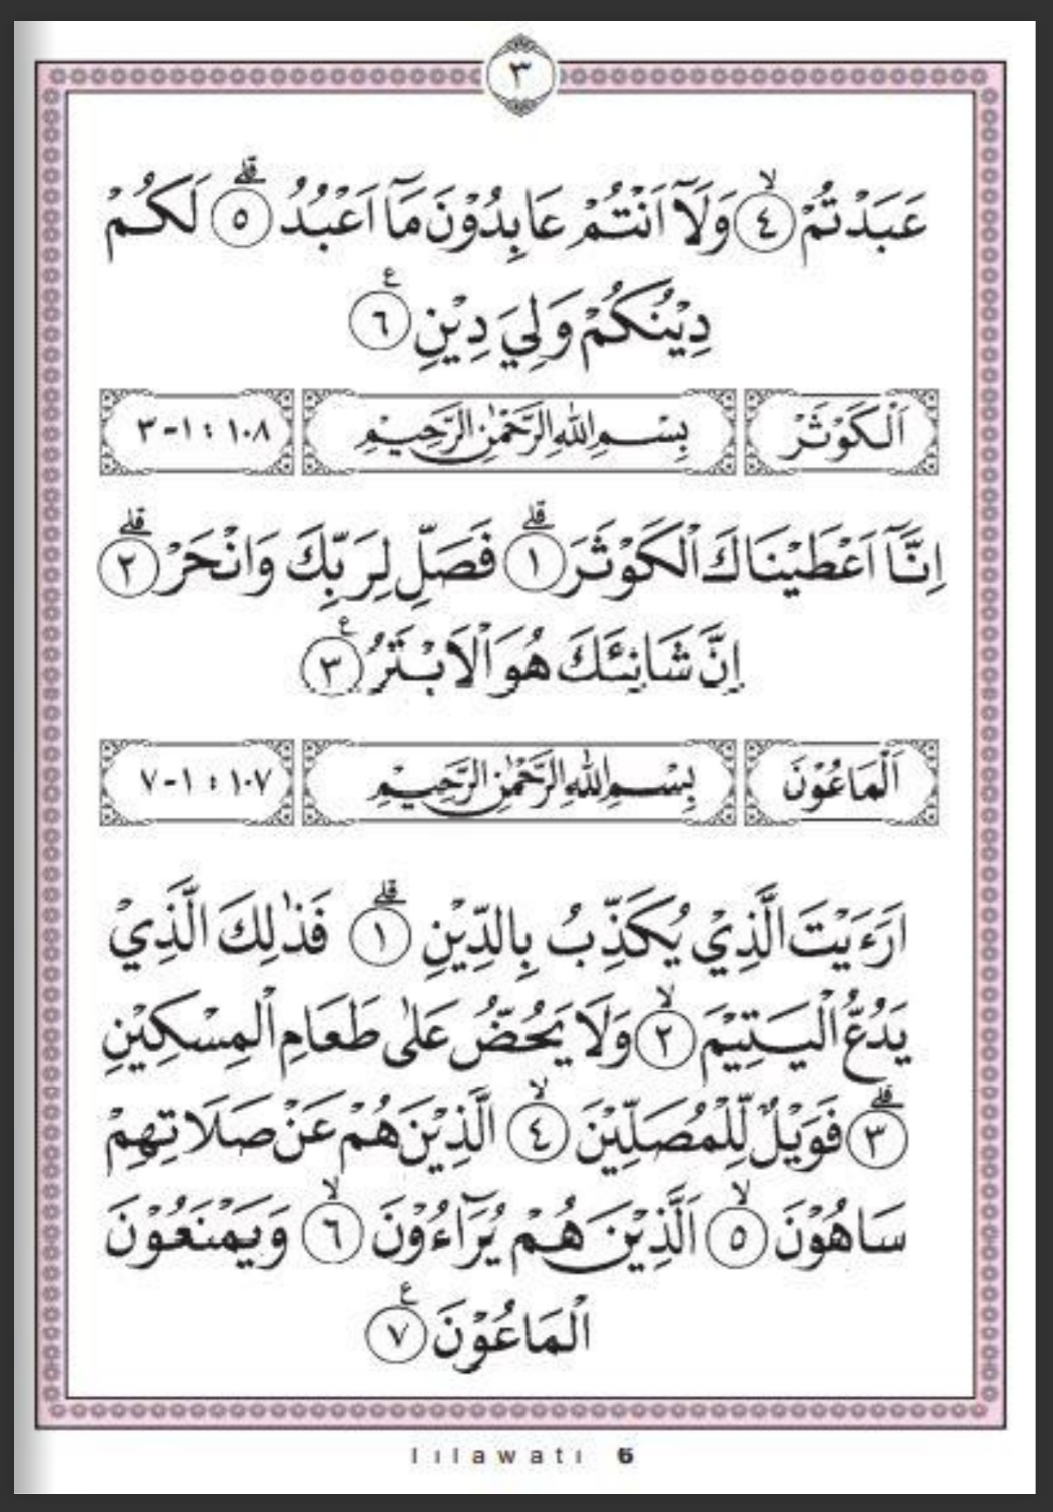 ٣
عَبَدْتُّمْ ۙ ﴿٤﴾ وَلَآ اَنْتُمْ عَابِدُوْنَ مَآ اَعْبُدُ ۗ ﴿٥﴾ لَكُمْ
دِيْنُكُمْ وَلِيَ دِيْنِ ࣖ ﴿٦﴾
اَلْكَوْثَرْ بِسْمِ اللهِ الرَّحْمٰنِ الرَّحِيْمِ ١٠٨ : ١-٣
اِنَّآ اَعْطَيْنَاكَ الْكَوْثَرَ ۗ ﴿١﴾ فَصَلِّ لِرَبِّكَ وَانْحَرْ ۗ ﴿٢﴾
اِنَّ شَانِئَكَ هُوَ الْاَبْتَرُ ࣖ ﴿٣﴾
اَلْمَاعُوْنَ بِسْمِ اللهِ الرَّحْمٰنِ الرَّحِيْمِ ١٠٧ : ١-٧
اَرَءَيْتَ الَّذِيْ يُكَذِّبُ بِالدِّيْنِ ۗ ﴿١﴾ فَذٰلِكَ الَّذِيْ
يَدُعُّ الْيَتِيْمَ ۙ ﴿٢﴾ وَلَا يَحُضُّ عَلٰى طَعَامِ الْمِسْكِيْنِ
ۗ ﴿٣﴾ فَوَيْلٌ لِّلْمُصَلِّيْنَ ۙ ﴿٤﴾ الَّذِيْنَ هُمْ عَنْ صَلَاتِهِمْ
سَاهُوْنَ ۙ ﴿٥﴾ اَلَّذِيْنَ هُمْ يُرَآءُوْنَ ۙ ﴿٦﴾ وَيَمْنَعُوْنَ
الْمَاعُوْنَ ࣖ ﴿٧﴾
tilawati 6